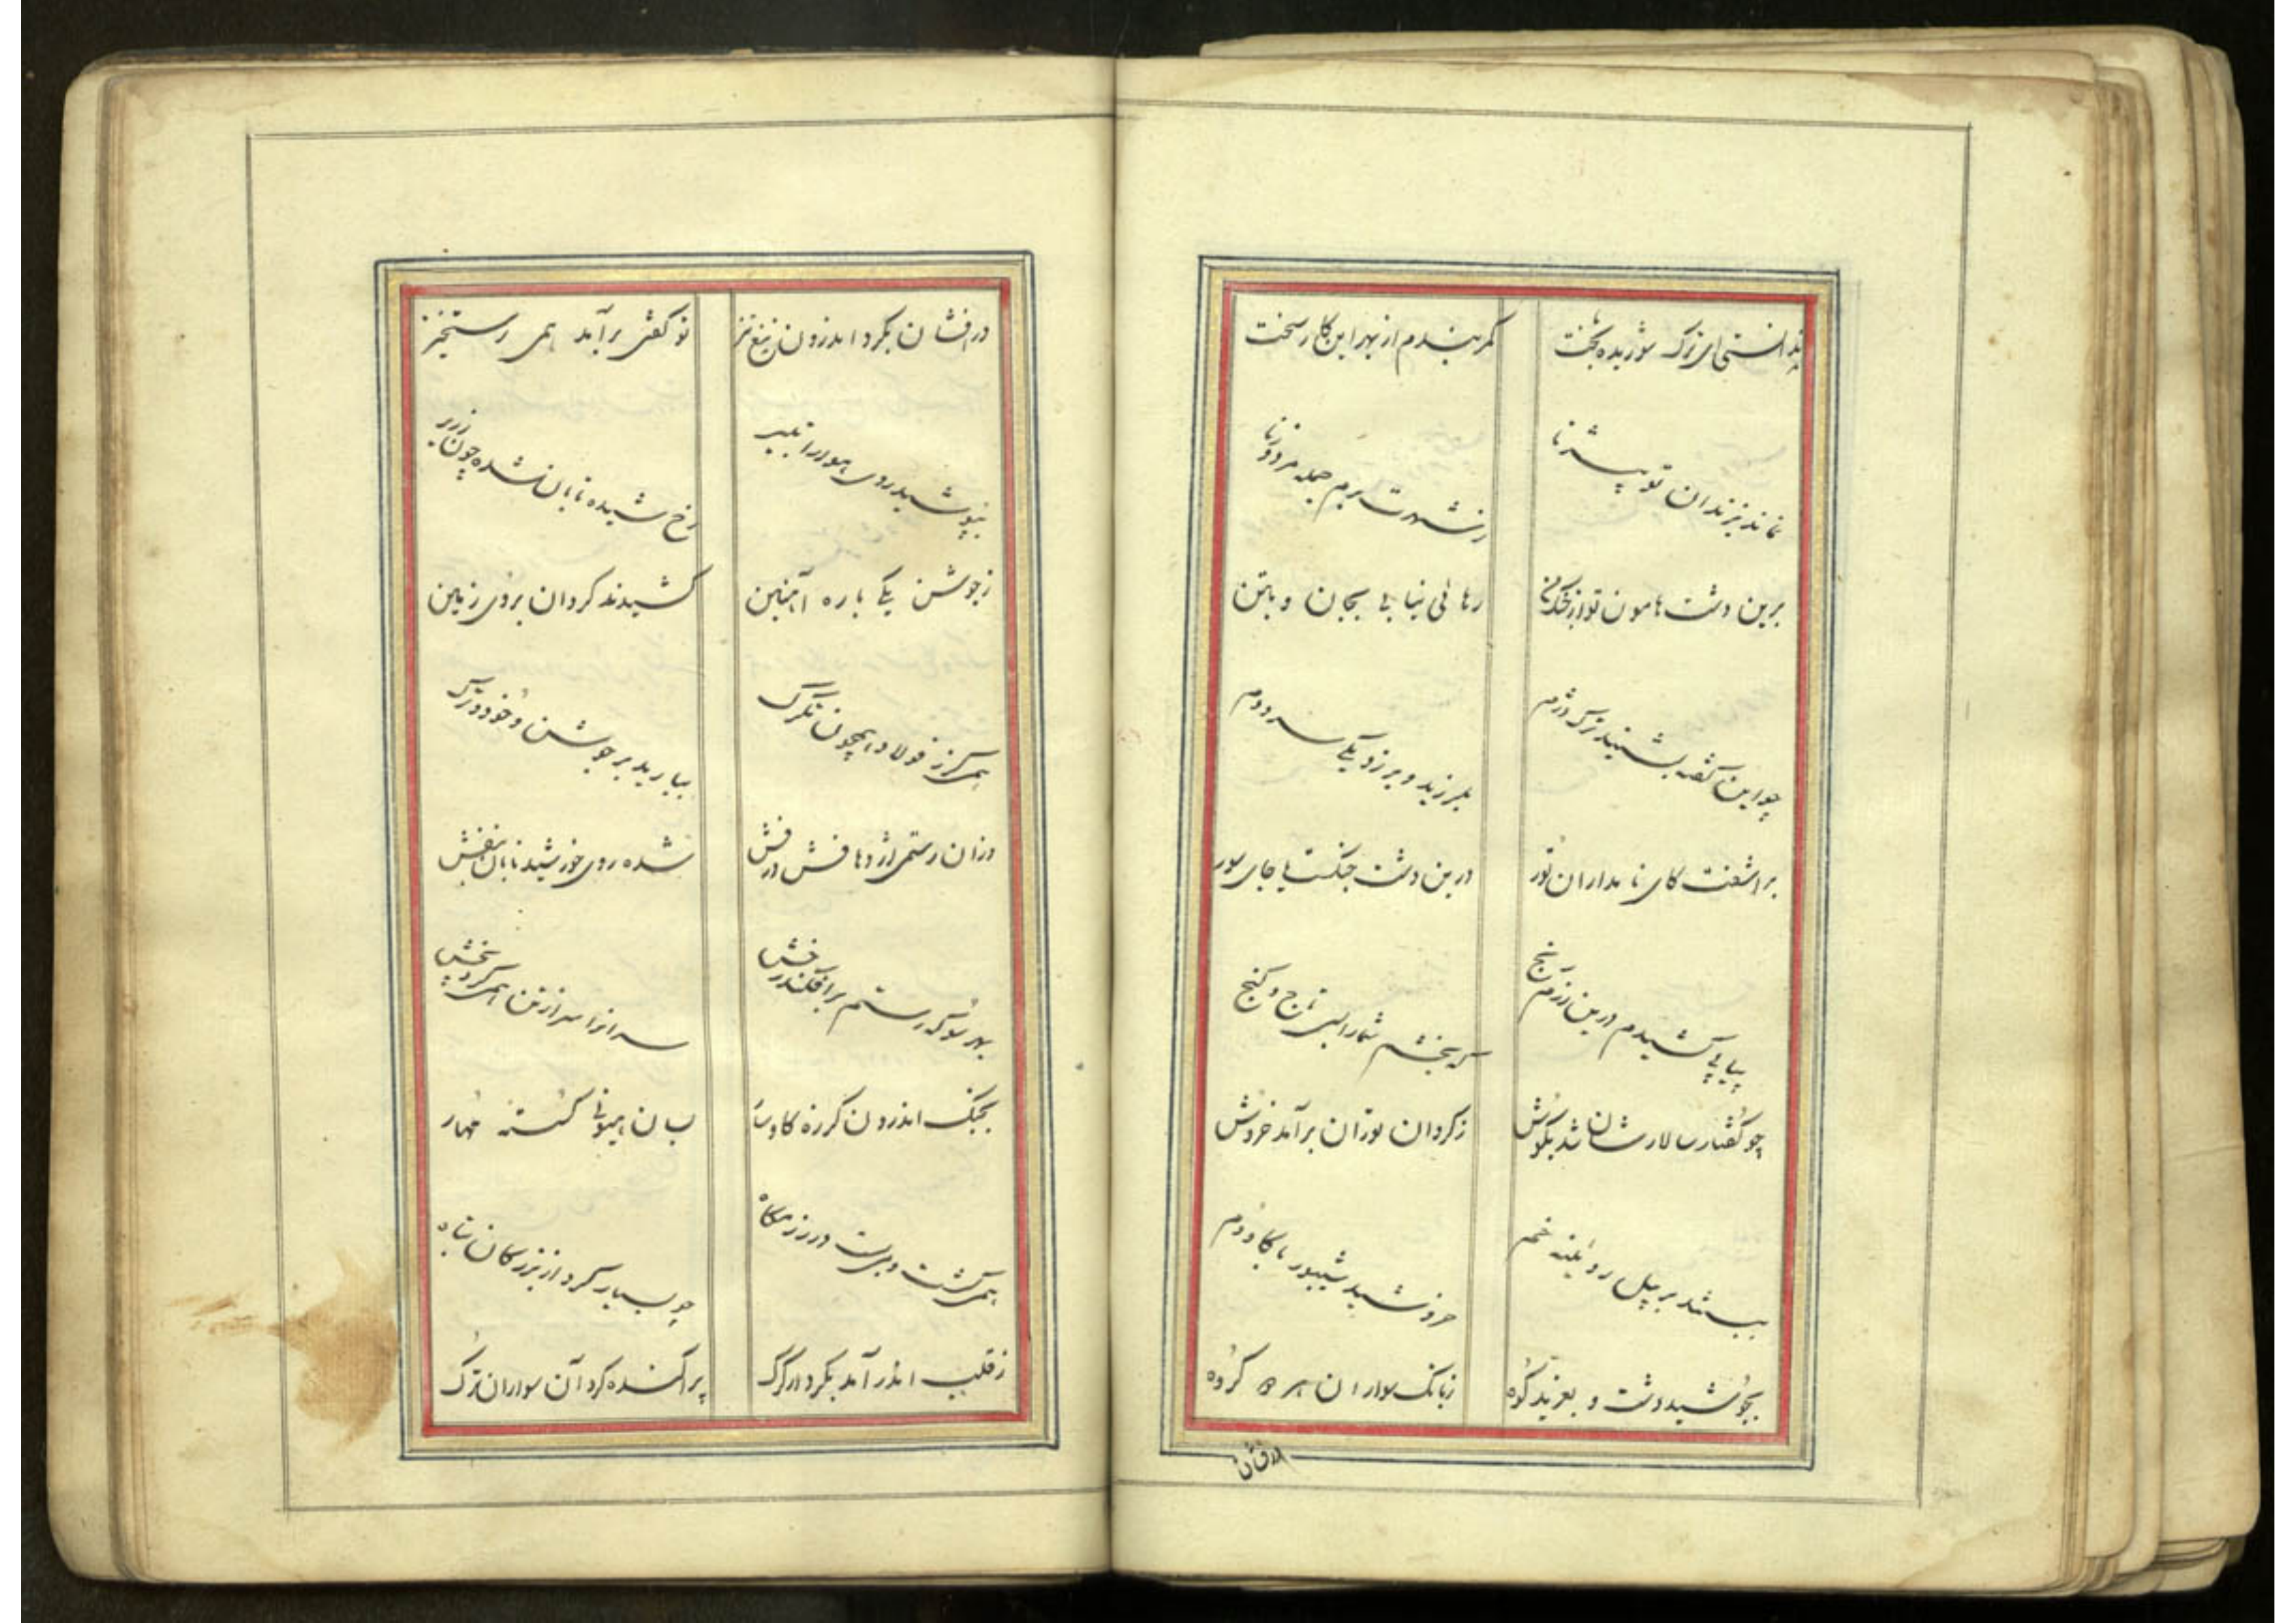 ندانستی ای ترک شوریده بخت کمر بندم از بهر این کار سخت
نماند بزندان تو بیژنا ز شهرت برم جمله مرد و زنا
برین دشت هامون تو از چنگ من رهائی نیابی بجان و بتن
چو این گفته بشنید ترک دژم بلرزید و برزد یکی سرد دم
براشفت کای نامداران تور درین دشت جنگست یا جای سور
پیاپی کشیدم درین رزم رنج که بخشم شما را بسی تاج و گنج
چو گفتار سالارشان شد بگوش ز کردان توران برآمد خروش
ببستند بر پیل رویینه خم خروشید شیپور با گاودم
بجوشید دشت و بغرید کوه ز بانک سواران هر دو گروه
درفشان
درفشان بکرد اندرون تیغ تیز تو کفتی برآمد همی رستخیز
بپوشید روی هوا را بتیر رخ شیده تابان شده چون زریر
ز جوشن یکی باره آهنین کشیدند کردان بروی زمین
همی کرز فولاد همچون تکرک ببارید بر جوشن و خود و ترک
وزان رستمی اژدهافش درفش شده روی خورشید تابان بنفش
بهر سو که رستم برافکند رخش سرانرا سر از تن همی کرد پخش
بجنک اندرون کرزه کاوسار بسان هیونی کسسته مهار
همی کشت و می بست در رزمکاه چو بسیار کرد از بزرکان تباه
ز قلب اندر آمد بکردار کرک پراکنده کرد آن سواران ترک